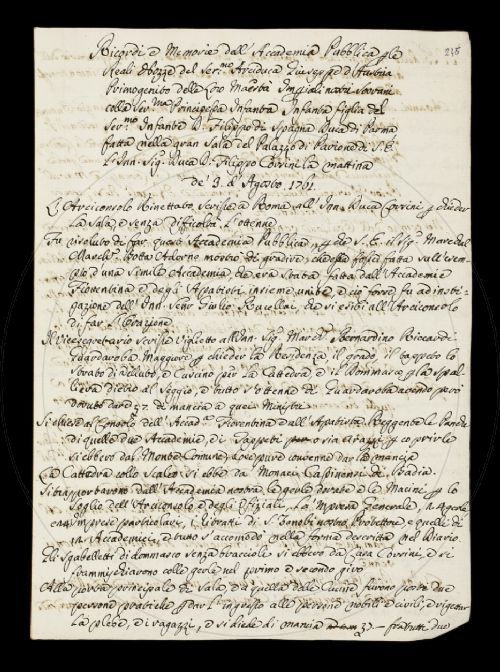 235
Ricordi e Memorie dell'Accademia Pubblica p le
Reali Nozze del Ser.mo Arciduca Giuseppe d'Austria
Primogenito delle Loro Maestà Imperiali nostri Sovrani
colla Ser.ma Principessa Infanta Isabella figlia del
Ser.mo Infante D. Filippo di Spagna Duca di Parma
fatta nella gran Sala del Palazzo di Parione di S. E.
L'Inn. Sig. Duca D. Filippo Corsini la mattina
de' 3. d'Agosto 1761.
L'Arciconsolo scrisse a Roma all'Inn. Duca Corsini p chieder
La Sala, e senza difficoltà l'ottenne.
Fu risoluto di far quest'Accademia Pubblica, p che S. E. il Sig. Maresciall
March. Botta Adorno mostrò di gradire, che fosse fatta sull'esem-
pio d'una simile Accademia, che era stata fatta dall'Accademia
Fiorentina e degli Apatisti insieme unite, e ciò forse fu ad insti-
gazione dell'Inn. Sen. Giulio Rucellai che si esibì all'Arciconsolo
di far l'Orazione.
Il Vicesegretario scrisse Viglietto all'Inn. Sig. March. Bernardino Riccardi
Guardaroba Maggiore p chieder la Residenza, il grado, il tappeto
di velluto, e Cuscino per la Cattedra, e il Dommasco p la spal-
liera dietro al Seggio, e tutto s'ottenne di Guardaroba avendo però
dovuto dar di mancia a quei Ministri
Si chiese al Consolo dell'Accad. Fiorentina dall'Apatista Reggente le Panche
di quelle due Accademie, di Tappeti o sia p coprirle
si ebbero dal Monte Comune, dove pure convenne dar la mancia
La Cattedra collo Scaleo si ebbe da' Monaci Casinensi di Badia.
Si trasportarono dall'Accademia nostra le gerle dorate e le Macini p lo
Soglio dell'Arciconsolo e degli Ufiziali, La Impresa Generale,
Imprese particolari, i Ritratti di S. Zanobi nostro Protettore, e quelli di
Accademici, e tutto s'accomodò nella forma descritta nel Diario.
Gli Sgabelletti di dommasco senza bracciole si ebbero da Casa Corsini, e si
frammischiarono colle gerle nel primo e secondo giro
Alla porta principale di Sala, e a quella delle Cucine furono poste due
persone pratiche p dar l'ingresso alle persone nobili e civili, e rigettar
La plebe, e i ragazzi, e si diede di mancia fra tutti due